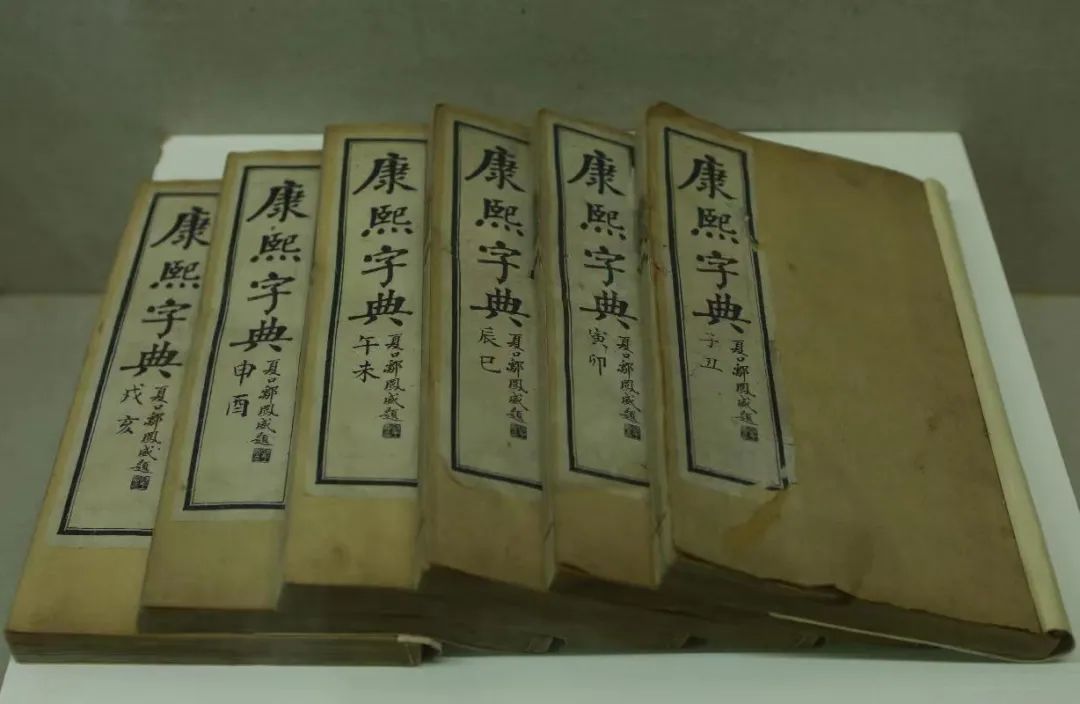 康熙字典
夏口鄒鳳題
子丑
康熙字典
夏口鄒鳳題
寅卯
康熙字典
夏口鄒鳳題
辰巳
康熙字典
夏口鄒鳳題
午未
康熙字典
夏口鄒鳳題
申酉
康熙字典
夏口鄒鳳題
戌亥